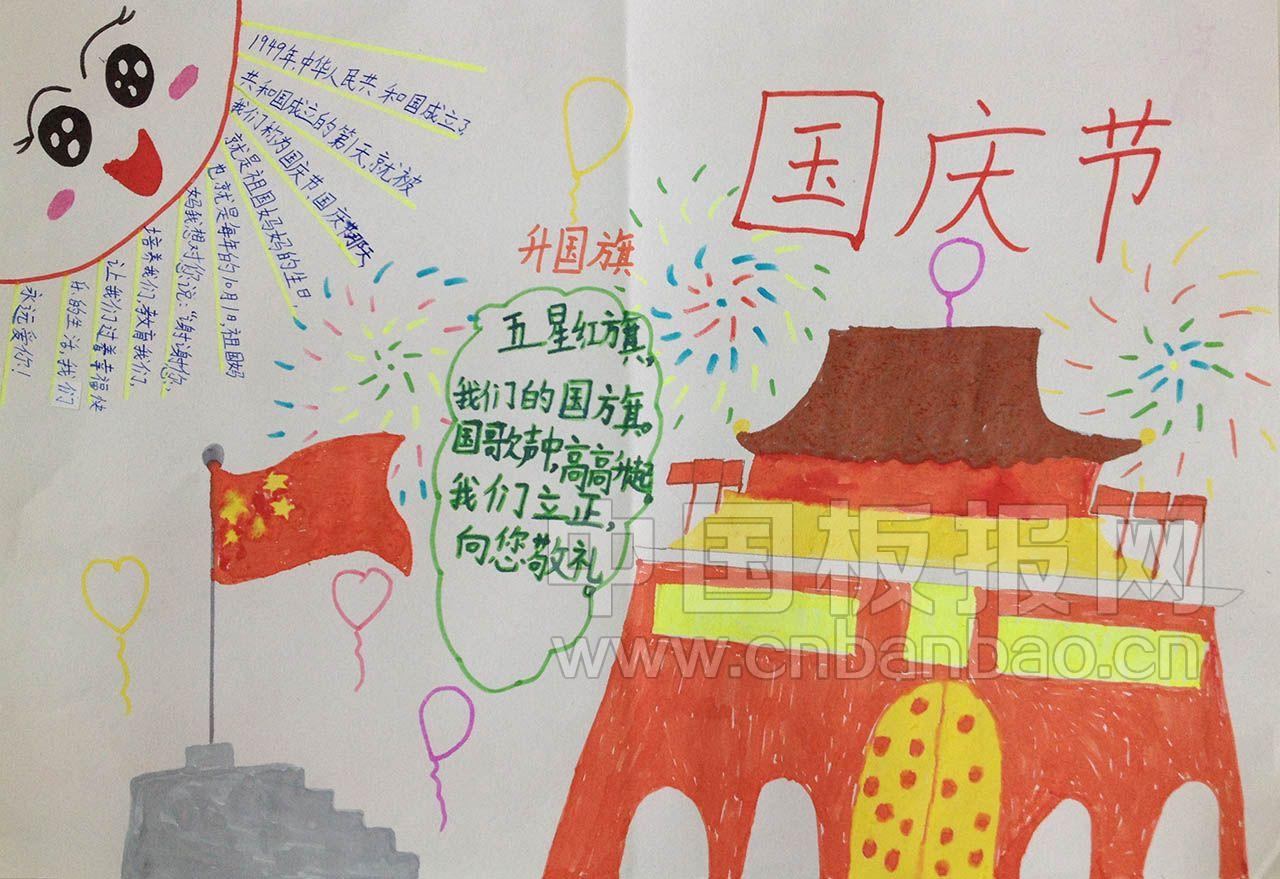 国庆节
1949年,中华人民共和国成立了
共和国成立的第1天,就被
我们称为国庆节国庆节那天,
就是祖国妈妈的生日
也就是每年的10月1日,祖国妈
妈我想对你说:“谢谢您,
培养我们,教育我们,
让我们过着幸福快
乐的生活,我们
永远爱你!
升国旗
五星红旗,
我们的国旗。
国歌声中,高高升起。
我们立正,
向您敬礼。
中国板报网
www.cnbanbao.cn